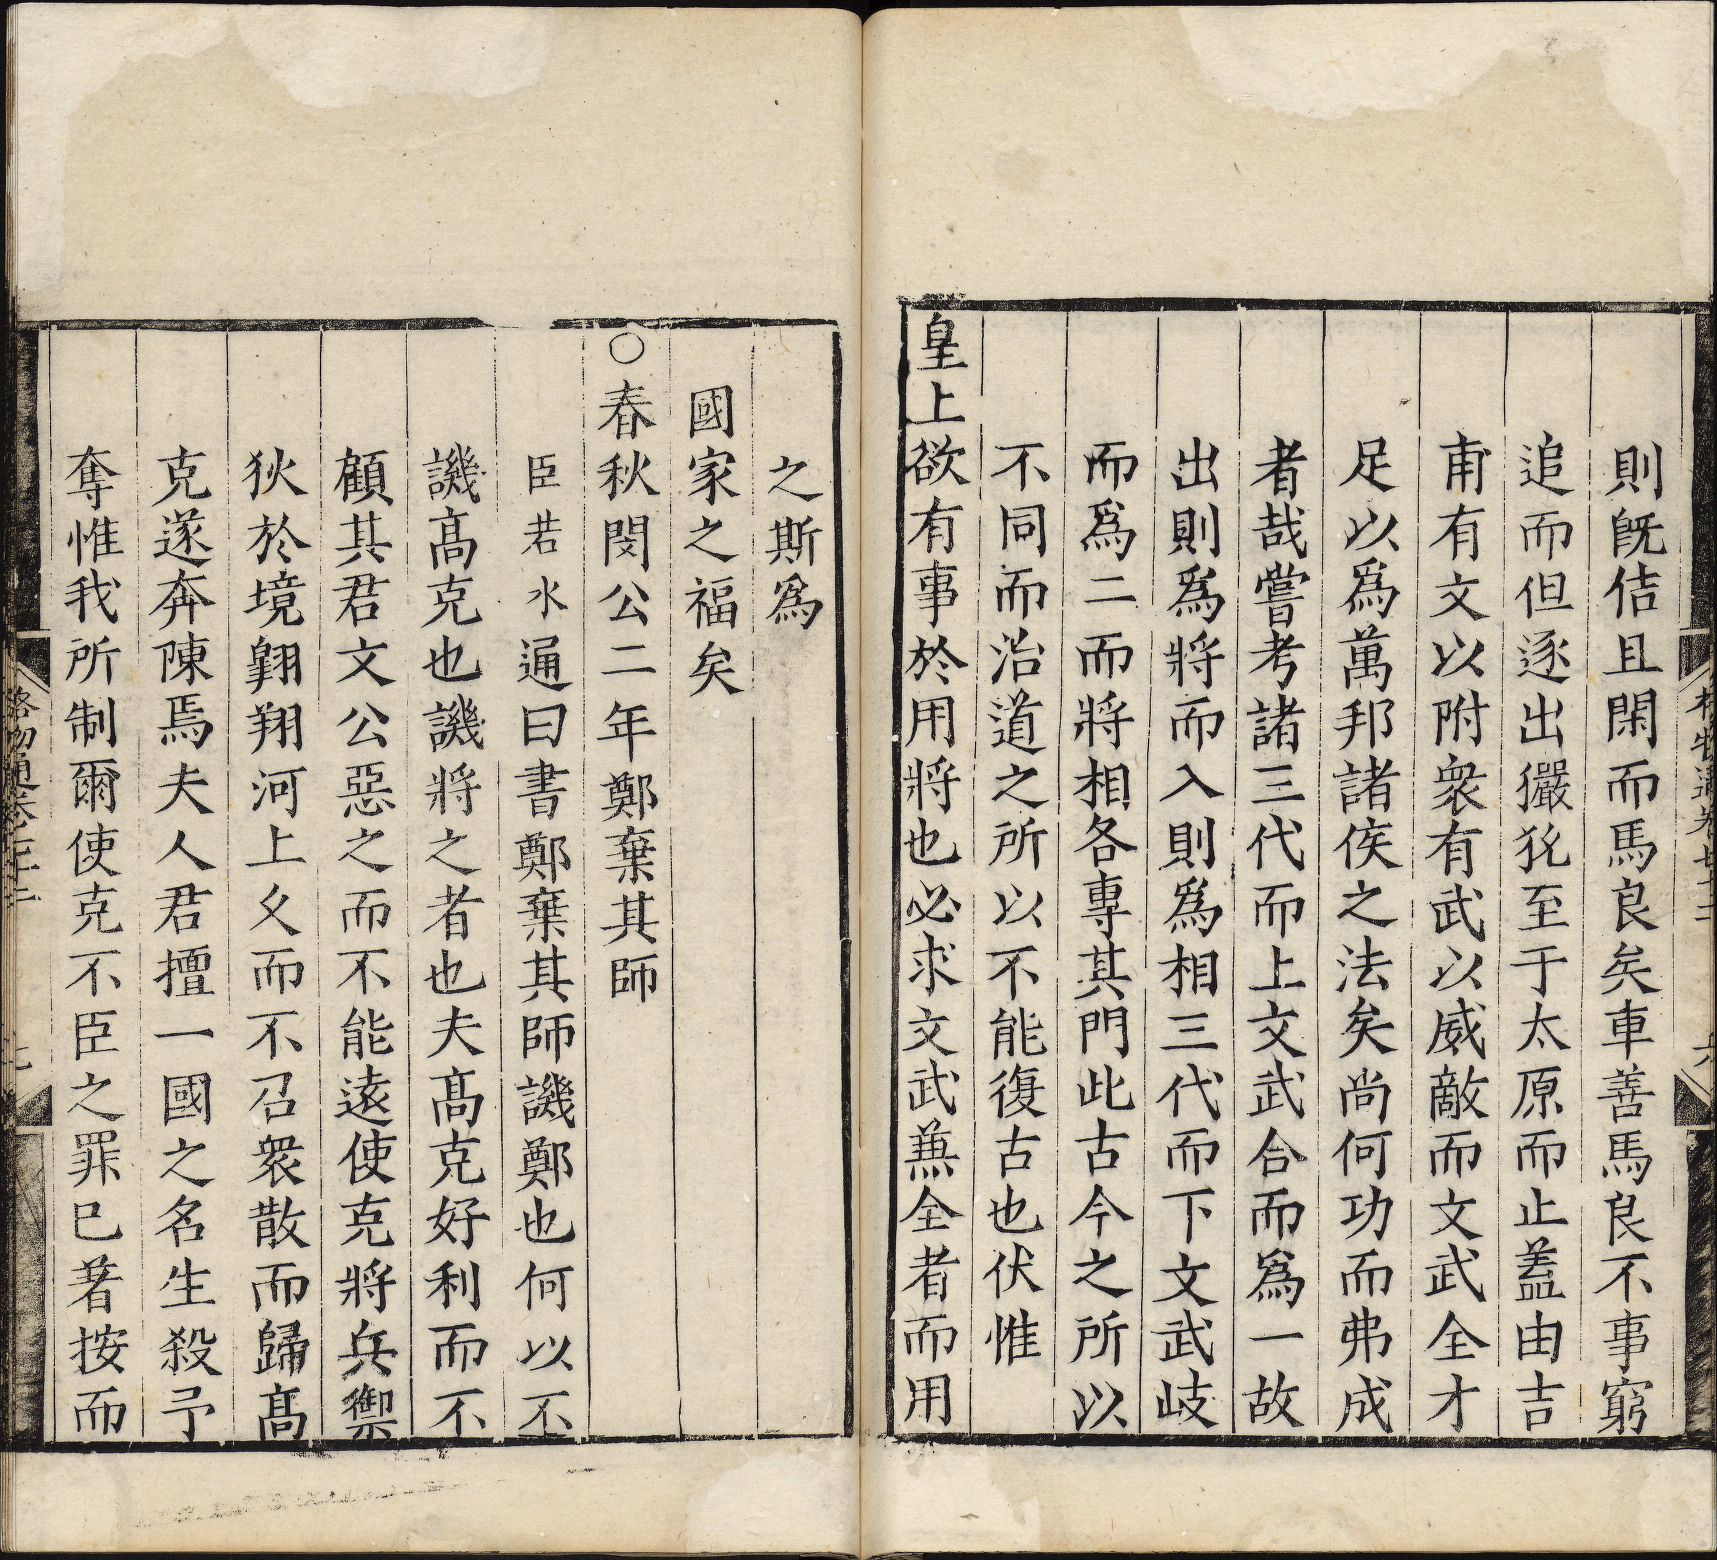 則旣佶且閑而馬良矣車善馬良不事窮
追而但逐出玁狁至于太原而止葢由吉
甫有文以附衆有武以威敵而文武全才
足以爲萬邦諸侯之法矣尚何功而弗成
者哉嘗考諸三代而上文武合而爲一故
出則爲將而入則爲相三代而下文武岐
而爲二而將相各專其門此古今之所以
不同而治道之所以不能復古也伏惟
皇上欲有事於用將也必求文武兼全者而用
之斯爲
國家之福矣
○春秋閔公二年鄭棄其師
臣若水通曰書鄭棄其師譏鄭也何以不
譏高克也譏將之者也夫高克好利而不
顧其君文公惡之而不能遠使克將兵禦
狄於境翺翔河上久而不召衆散而歸高
克遂奔陳焉夫人君擅一國之名生殺予
奪惟我所制爾使克不臣之罪已著按而